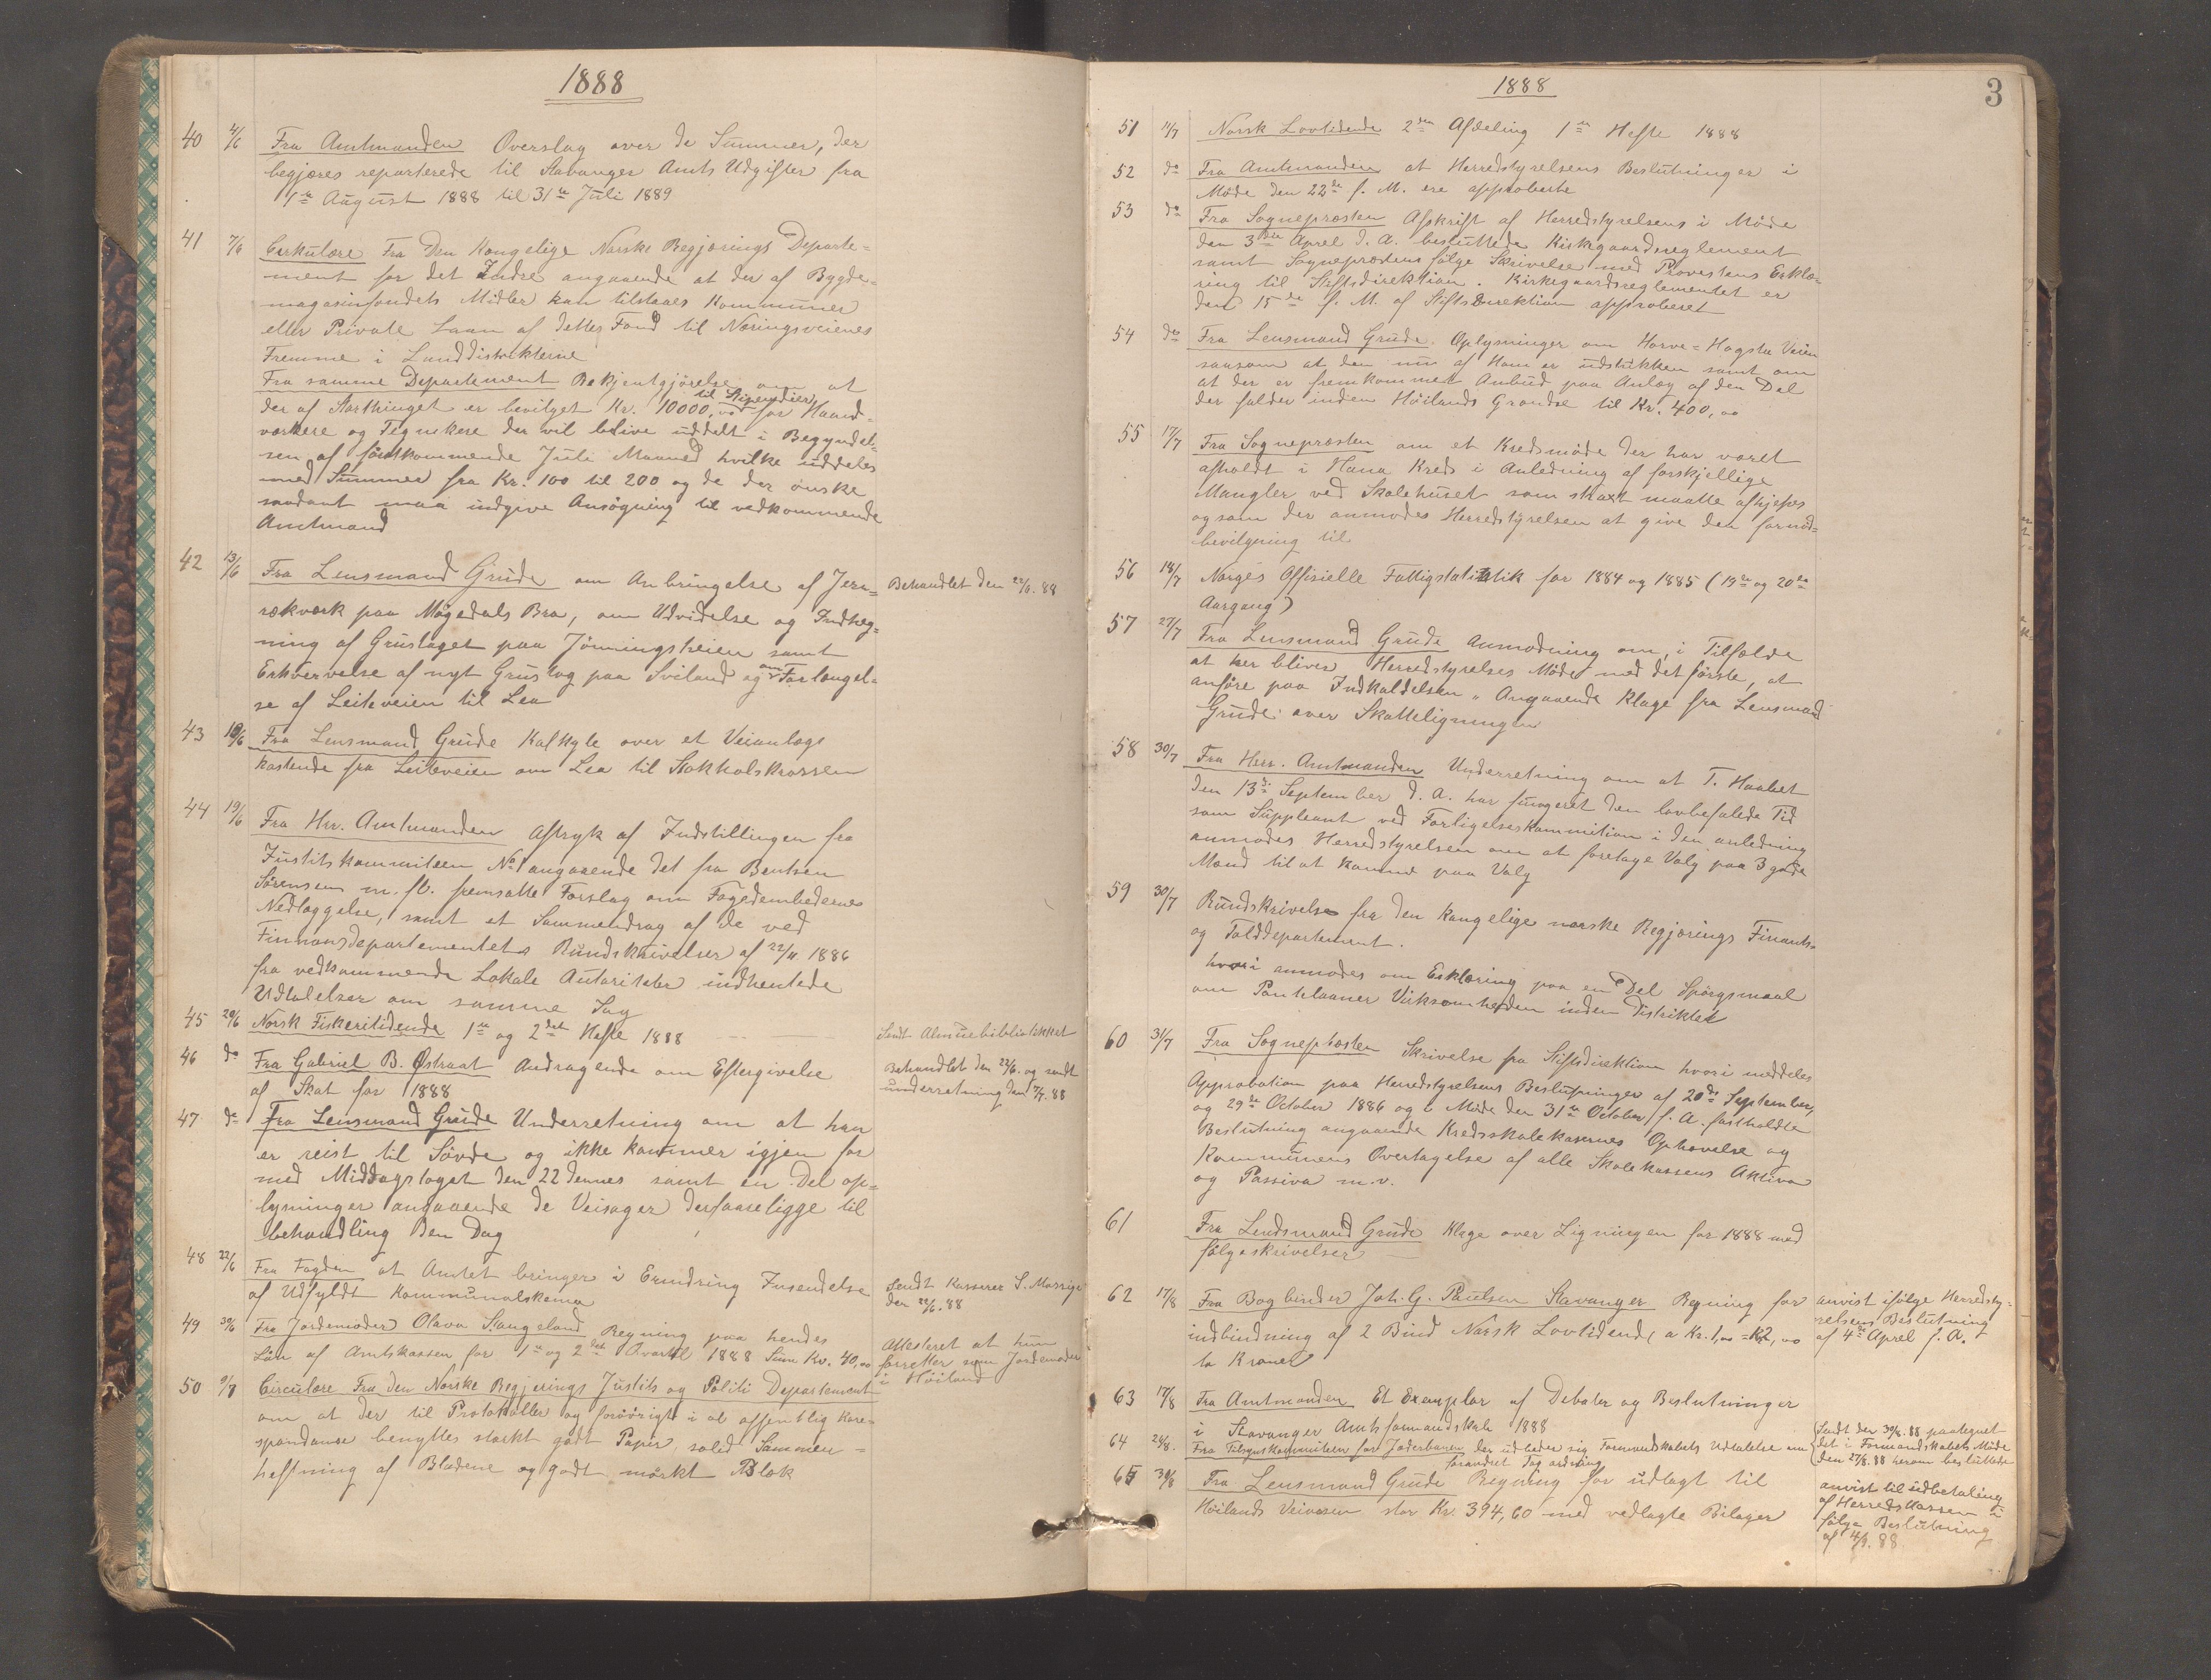 1888
40 4/6 Fra Amtmanden Overslag over de Summer, der
begjæres reparterede til Stavanger Amts Udgifter fra
1ste August 1888 til 31te Juli 1889
41 7/6 Cirkulære Fra Den Kongelige Norske Regjerings Departe=
ment for det Indre angaaende at der af Bygde=
magasinfondets Midler kan tilstaaes Kommuner
eller Private Laan af dettes Fond til Næringsveienes
Fremme i Landdistrikterne
Fra samme Departement Bekjentgjørelse om at
til Stipendier
der af Storthinget er bevilget Kr. 10000,00 for Haand=
værkere og Tegnekere der vil blive uddelt i Begyndel=
sen af førstkommende Juli Maaned hvilke uddeles
med Summer fra Kr. 100 til 200 og de der ønske
saadant maa indgive Ansøgning til vedkommende
Amtmand
42 13/6 Fra Lensmand Grude om Anbringelse af Jern= Behandlet den 22/6. 88
rækværk paa Møgedals Bro, om Udvidelse og Indheg=
ning af Grustaget paa Jønningsheien samt
Erhvervelse af nyt Grustag paa Sviland og om Forlængel=
se af Leiteveien til Lea
43 18/6 Fra Lensmand Grude Kalkyle over et Veianlægs
kostende fra Leiteveien om Lea til Stokkalskrossen
44 19/6 Fra Hrr. Amtmanden Aftryk af Indstillingen fra
Justitskommiteen No 1 angaaende det fra Bentsen
Sørensen m. fl. fremsatte Forslag om Fogedembedernes
Nedlæggelse, samt et Sammendrag af de ved
Finansdepartementets Rundskrivelser af 22/11 1886
fra vedkommende Lokale Autoriteter indhentede
Udtalelser om samme Sag
45 20/6 Norsk Fiskeritidende 1ste og 2det Hefte 1888 Sendt Almuebibliotekket
46 do Fra Gabriel B. Østraat Andragende om Eftergivelse Behandlet den 22/6. og sendt
af Skat for 1888 underretning den 7/7. 88
47 do Fra Lensmand Grude Underretning om at han
er reist til Søvde og ikke kommer igjen før
med Middagstoget den 22 dennes samt en Del op=
lysninger angaaende de Veisager der foreligge til
behandling Den Dag
48 22/6 Fra Fogden at Amtet bringer i Erindring Insendelse Sendt Kasserer S. Marrige
af Udfyldt Kommunalskema den 22/6. 88
49 30/6 Fra Jordemoder Olava Stangeland Regning paa hendes Attesteret at hun
Løn af Amtskassen for 1ste og 2det Kvartal 1888 Sum Kr. 40,00 forretter som Jordemoder
i Høiland
50 9/7 Circulære Fra den Norske Regjerings Justits og Politi Departement
om at der til Protokoller og forøvrigt i al offentlig Kore=
spondanse benyttes stærkt godt Papir, solid Sammen=
heftning af Bladene og godt mørkt Blæk
1888 3
51 14/7 Norsk Lovtidende 2den Afdeling 1ste Hefte 1888
52 do Fra Amtmanden at Herredstyrelsens Beslutninger i
Møde den 22de f. M. ere approberte
53 do Fra Sognepræsten Afskrift af Herredstyrelsens i Møde
den 3die April d. A. besluttede Kirkegaardsreglement
samt Sognepræstens følge Skrivelse med Provestens Erklæ=
ring til Stiftsdirektion. Kirkegaardsreglementet er
den 15de f. M. af Stiftsdirektion approberet
54 do Fra Lensmand Grude. Oplysninger om Horve=Hogstu Veien
saasom at den nu af Ham er udstukken samt om
at der er fremkommet Anbud paa Anlæg af den Del
der falder inden Høilands Grændse til Kr. 400,00
55 17/7 Fra Sognepræsten om et Kredsmøde der har været
afholdt i Hana Kreds i Anledning af forskjellige
Mangler ved Skolehuset som strakt maatte afhjelpes
og som der anmodes Herredstyrelsen at give den fornød=
bevilgning til
56 18/7 Norges Offisielle Fattigstatistik for 1884 og 1885 (19de og 20de
Aargang)
57 27/7 Fra Lensmand Grude Anmodning om, i Tilfælde
at her bliver Herredstyrelses Møde med det første, at
anføre paa Indkaldelsen "Angaaende Klage fra Lensmand
Grude over Skatteligningen
58 30/7 Fra Herr. Amtmanden Underretning om at T. Haabet
den 13de September d. A. har fungeret den lovbefalede Tid
som Suppleant ved Forligelseskommition i den anledning
anmodes Herredstyrelsen om at foretage Valg paa 3 gode
Mænd til at komme paa Valg
59 30/7 Rundskrivelse fra den kongelige norske Regjerings Finants=
og Tolddepartement.
hvori anmodes om Erklæring paa en Del Spørgsmaal
om Pantelaaner Virksomheden inden Distriktet
60 31/7 Fra Sognepræsten Skrivelse fra Stiftsdirektion hvori meddeles
Approbation paa Herredstyrelsens Beslutninger af 20de September,
og 29de October 1886 og i Møde den 31te October f. A. fastholdte
Beslutning angaaende Kredsskolekassernes Ophævelse og
Kommunens Overtagelse af alle Skolekassens Aktiva
og Passiva m.v.
61 Fra Lendsmand Grude Klage over Ligningen for 1888 med
følgeskrivelser
62 17/8 Fra Bogbinder Joh. G. Paulsen Stavanger Regning for anvist ifølge Herredsty=
indbindning af 2 Bind Norsk Lovtidende a Kr. 1,00 = Kr 2,00 relsens Beslutning
to Kroner af 4de April f. A.
63 17/8 Fra Amtmanden Et Exemplar af Debater og Beslutninger
i Stavanger Amtsformandskab 1888
64 24/8. Fra Tilsynskommiteen for Jæderbanen der udbeder sig Formandskabets Udtalelse om Sendt den 30/8. 88 paategnet
forandret Dag ordning det i Formandskabets Møde
den 27/8. 88 herom besluttede
65 30/8 Fra Lensmand Grude Regning for udlagt til anvist til udbetaling
Høilands Veivæsen stor Kr. 394,60 med vedlagte Bilager af Herredskassen i
følge Beslutning
af 4/9. 88.